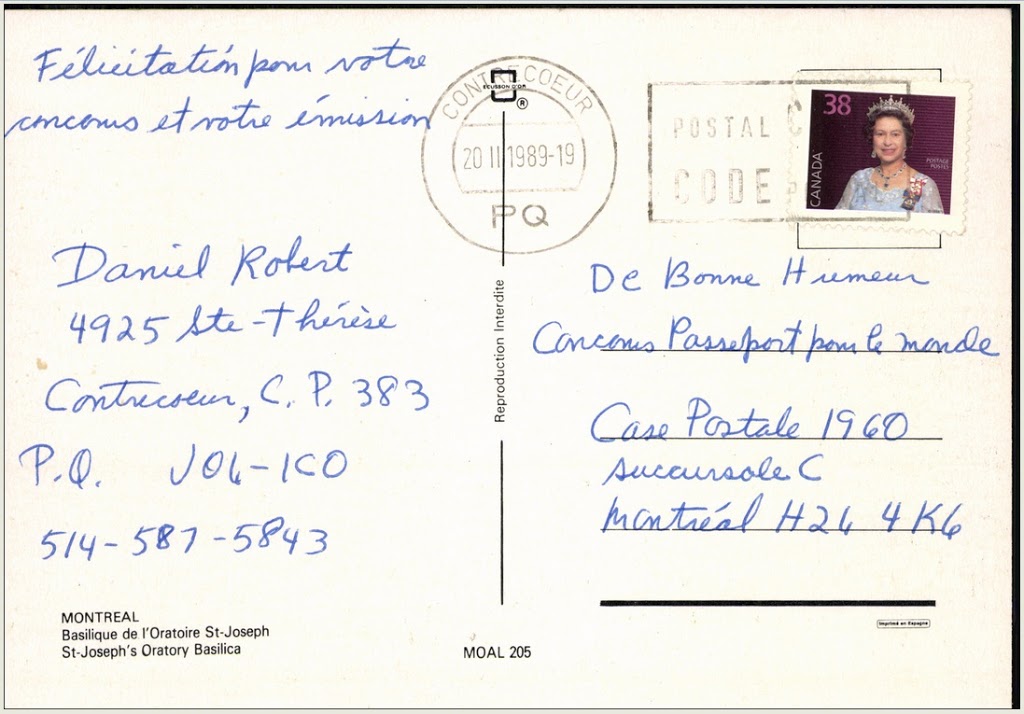 Félicitation pour votre
concours et votre émission
Daniel Robert
4925 Ste-Thérèse
Contrecoeur, C. P. 383
P.Q. J0L-1C0
514-587-5843
MONTREAL
Basilique de l'Oratoire St-Joseph
St-Joseph's Oratory Basilica
CONTRECOEUR
20 II 1989-19
PQ
ECUSSON D'OR
®
Reproduction Interdite
MOAL 205
POSTAL
CODE
38
CANADA
POSTAGE
POSTES
De Bonne Humeur
Concours Passeport pour le monde
Case Postale 1960
Succursale C
Montréal H2L 4K6
Imprimé en Espagne